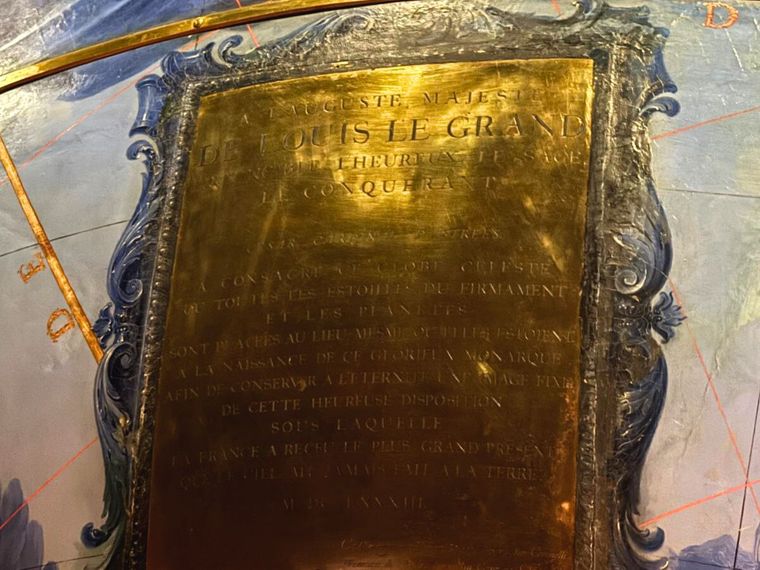 A L'AUGUSTE MAJESTÉ
DE LOUIS LE GRAND
L'HEUREUX, LE SAGE
LE CONQUERANT
CESAR CARDINAL D'ESTREES
A CONSACRÉ CE GLOBE CELESTE
OU TOUTES LES ESTOILLES DU FIRMAMENT
ET LES PLANETES
SONT PLACÉES AU LIEU MESME OU ELLES ESTOIENT
A LA NAISSANCE DE CE GLORIEUX MONARQUE
AFIN DE CONSERVER A L'ETERNITÉ UNE IMAGE FIXE
DE CETTE HEUREUSE DISPOSITION
SOUS LAQUELLE
LA FRANCE A RECEU LE PLUS GRAND PRESENT
QUE LE CIEL AIT JAMAIS FAIT A LA TERRE
M DC LXXXIII
D
E
D